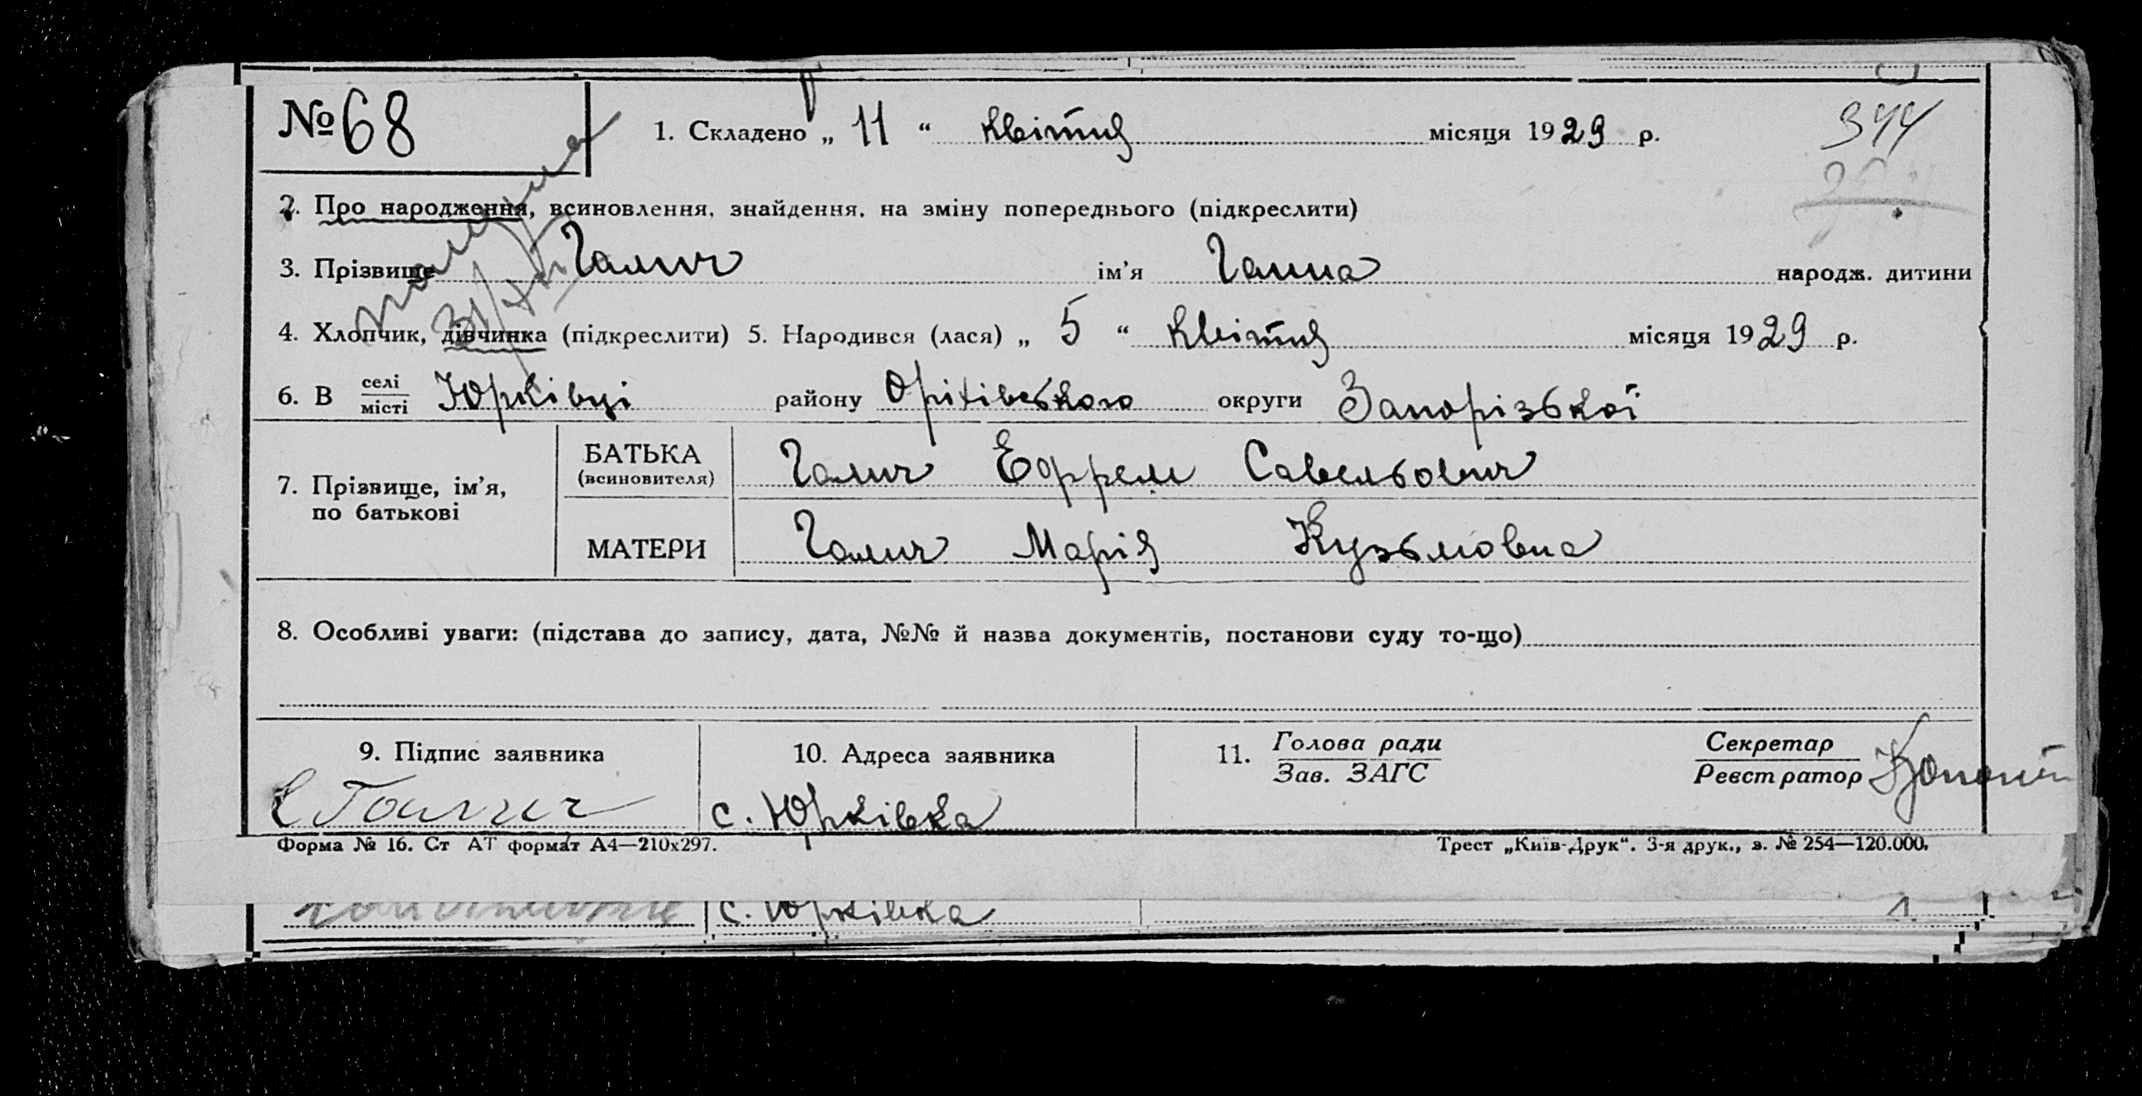 № 68
1. Складено „ 11 “ квітня місяця 1929 р.
344
2. Про народження, всиновлення, знайдення, на зміну попереднього (підкреслити)
3. Прізвище Галич ім’я Ганна народж. дитини
4. Хлопчик, дівчинка (підкреслити) 5. Народився (лася) „ 5 “ квітня місяця 1929 р.
6. В селі/місті Юрківці району Оріхівського округи Запорізької
7. Прізвище, ім’я, по батькові
БАТЬКА (всиновителя) Галич Ефрем Савельович
МАТЕРИ Галич Марія Кузьмовна
8. Особливі уваги: (підстава до запису, дата, №№ й назва документів, постанови суду то-що)
9. Підпис заявника
10. Адреса заявника
11. Голова ради / Зав. ЗАГС
Секретар / Реєстратор
Є Галич
с. Юрківка
Форма № 16. Ст АТ формат А4—210х297.
Трест „Київ-Друк“. 3-я друк., з. № 254—120.000.
с. Юрківка